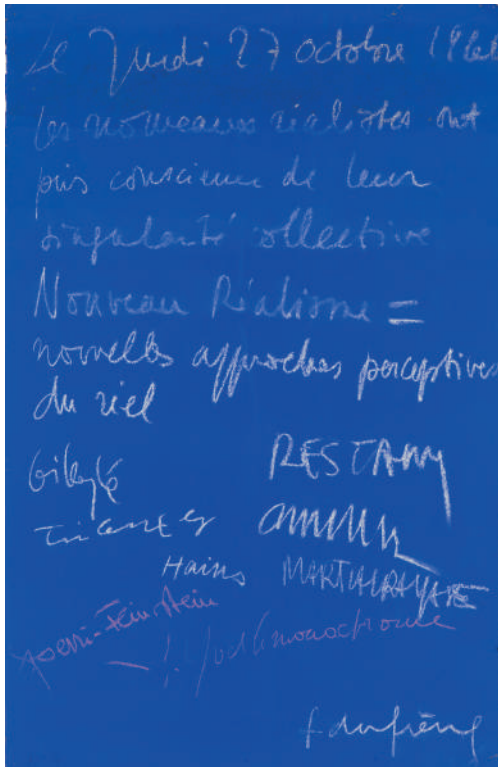 Le Jeudi 27 octobre 1960
les nouveaux réalistes ont
pris conscience de leur
singularité collective
Nouveau Réalisme =
nouvelles approches perceptives
du réel
RESTANY
Tinguely
Arman
Hains MARTIALRAYSSE
Spoerri-Feinstein
Y. Yves le monochrome
f dufrêne